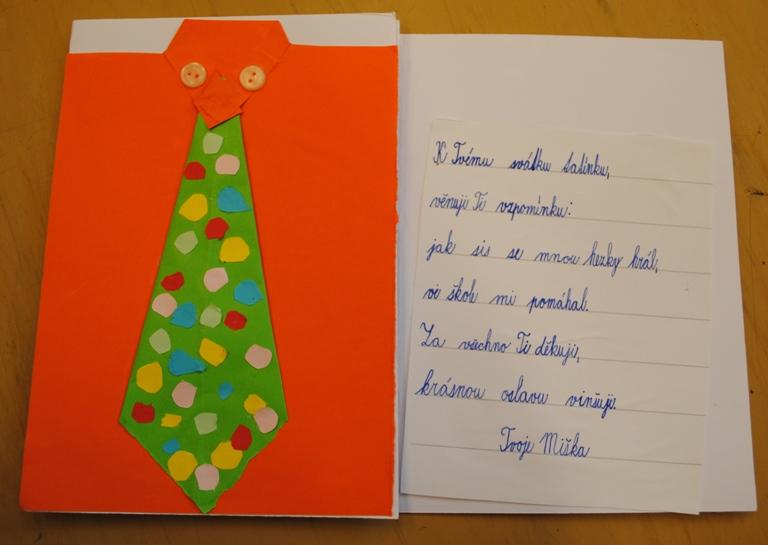 K Tvému svátku tatínku,
věnuji Ti vzpomínku:
jak sis se mnou hezky hrál,
ve škole mi pomáhal.
Za všechno Ti děkuji,
krásnou oslavu vinšuji.
Tvoje Miška